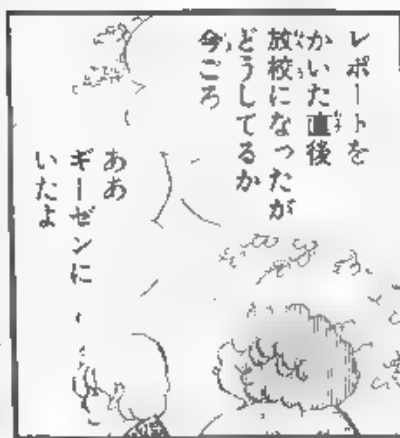 レポートを
かいた直後
放校になったが
どうしてるか
今ごろ
ああ
ギーゼンに
いたよ